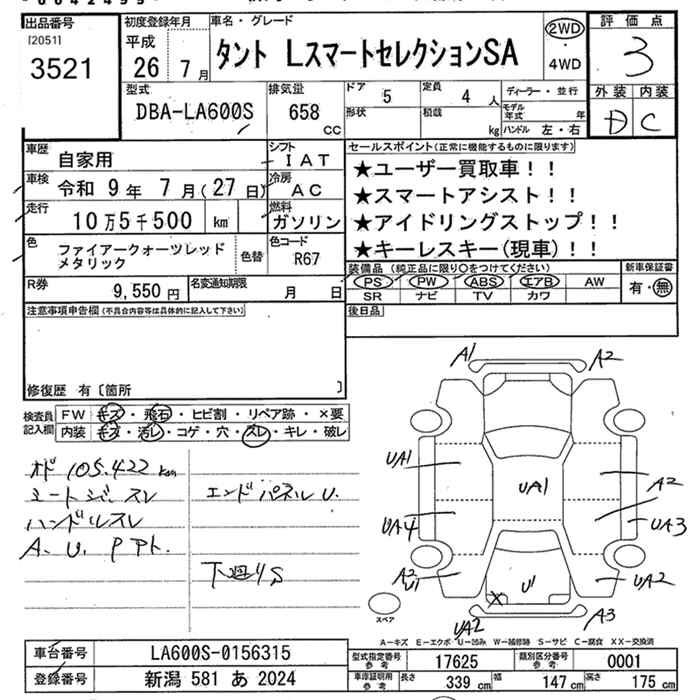 出品番号
[2051]
3521
初度登録年月
平成
26 7月
車名・グレード
タント LスマートセレクションSA
2WD
・
4WD
評価点
3
外装 内装
D C
型式
DBA-LA600S
排気量
658
CC
ドア
5
定員
4 人
形状
積載
kg
ディーラー・並行
モデル年式 年
ハンドル 左・右
車歴
自家用
シフト
IAT
車検
令和 9年 7月(27日)
冷房
AC
走行
10万5千500 km
燃料
ガソリン
色
ファイアークォーツレッド
メタリック
色替
色コード
R67
R券
9,550 円
名変通知期限
月 日
セールスポイント(正常に機能するものに限ります)
★ユーザー買取車!!
★スマートアシスト!!
★アイドリングストップ!!
★キーレスキー(現車)!!
装備品(純正品に限り○をつけてください)
PS PW ABS エアB AW
SR ナビ TV カワ
新車保証書
有・無
後日品
注意事項申告欄(不具合内容等は具体的に記入して下さい)
修復歴 有〔箇所 〕
検査員
記入欄
FW キズ・飛石・ヒビ割・リペア跡・×要
内装 キズ・汚レ・コゲ・穴・スレ・キレ・破レ
オド 105.422 km
シートシミ スレ
ハンドルスレ
A. U. P Pt.
エンドパネルU.
下廻りS
A1
A2
UA1
UA1
A2
UA4
UA3
A2
U1
U1
UA2
UA2
A3
スペア
A−キズ E−エクボ U−凹み W−補修跡 S−サビ C−腐食 XX−交換済
車台番号
LA600S-0156315
登録番号
新潟 581 あ 2024
型式指定番号
参考
17625
類別区分番号
参考
0001
車庫証明用
参考
長さ 339 cm
幅 147 cm
高さ 175 cm